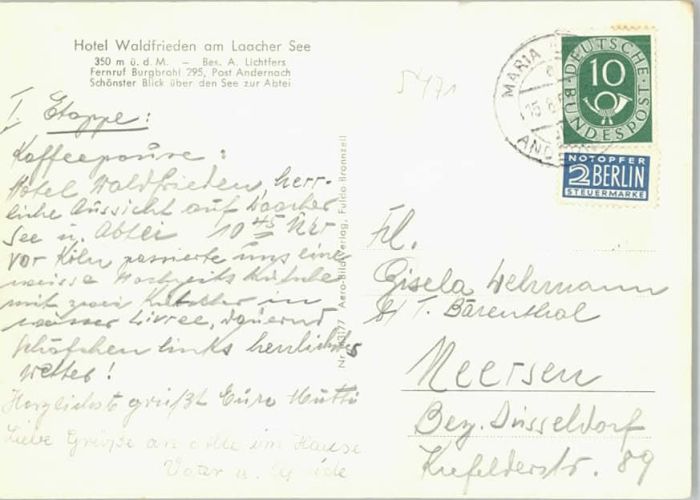 Hotel Waldfrieden am Laacher See
350 m ü. d. M. – Bes. A. Lichtfers
Fernruf Burgbrohl 295, Post Andernach
Schönster Blick über den See zur Abtei
5471
I. Etappe:
Kaffeepause:
Hotel Waldfrieden, herr-
liche Aussicht auf Laacher
See u. Abtei 10 45 Uhr
vor Köln passierte uns eine
weisse Hochzeits Kutsche
mit zwei in
weisser Livree, dauernd
Schäfchen links herrliches
Wetter!
Herzlichst grüßt Eure Mutti
Liebe Grüße an alle im Hause
Vater u.
Nr. Aero-Bild-Verlag, Fulda Bronnzell
MARIA
15.8.
AND
DEUTSCHE
10
BUNDESPOST
NOTOPFER
2 BERLIN
STEUERMARKE
Frl.
Gisela Wehrmann
Bärenthal
Meersen
Bez. Düsseldorf
Kiefelderstr. 89